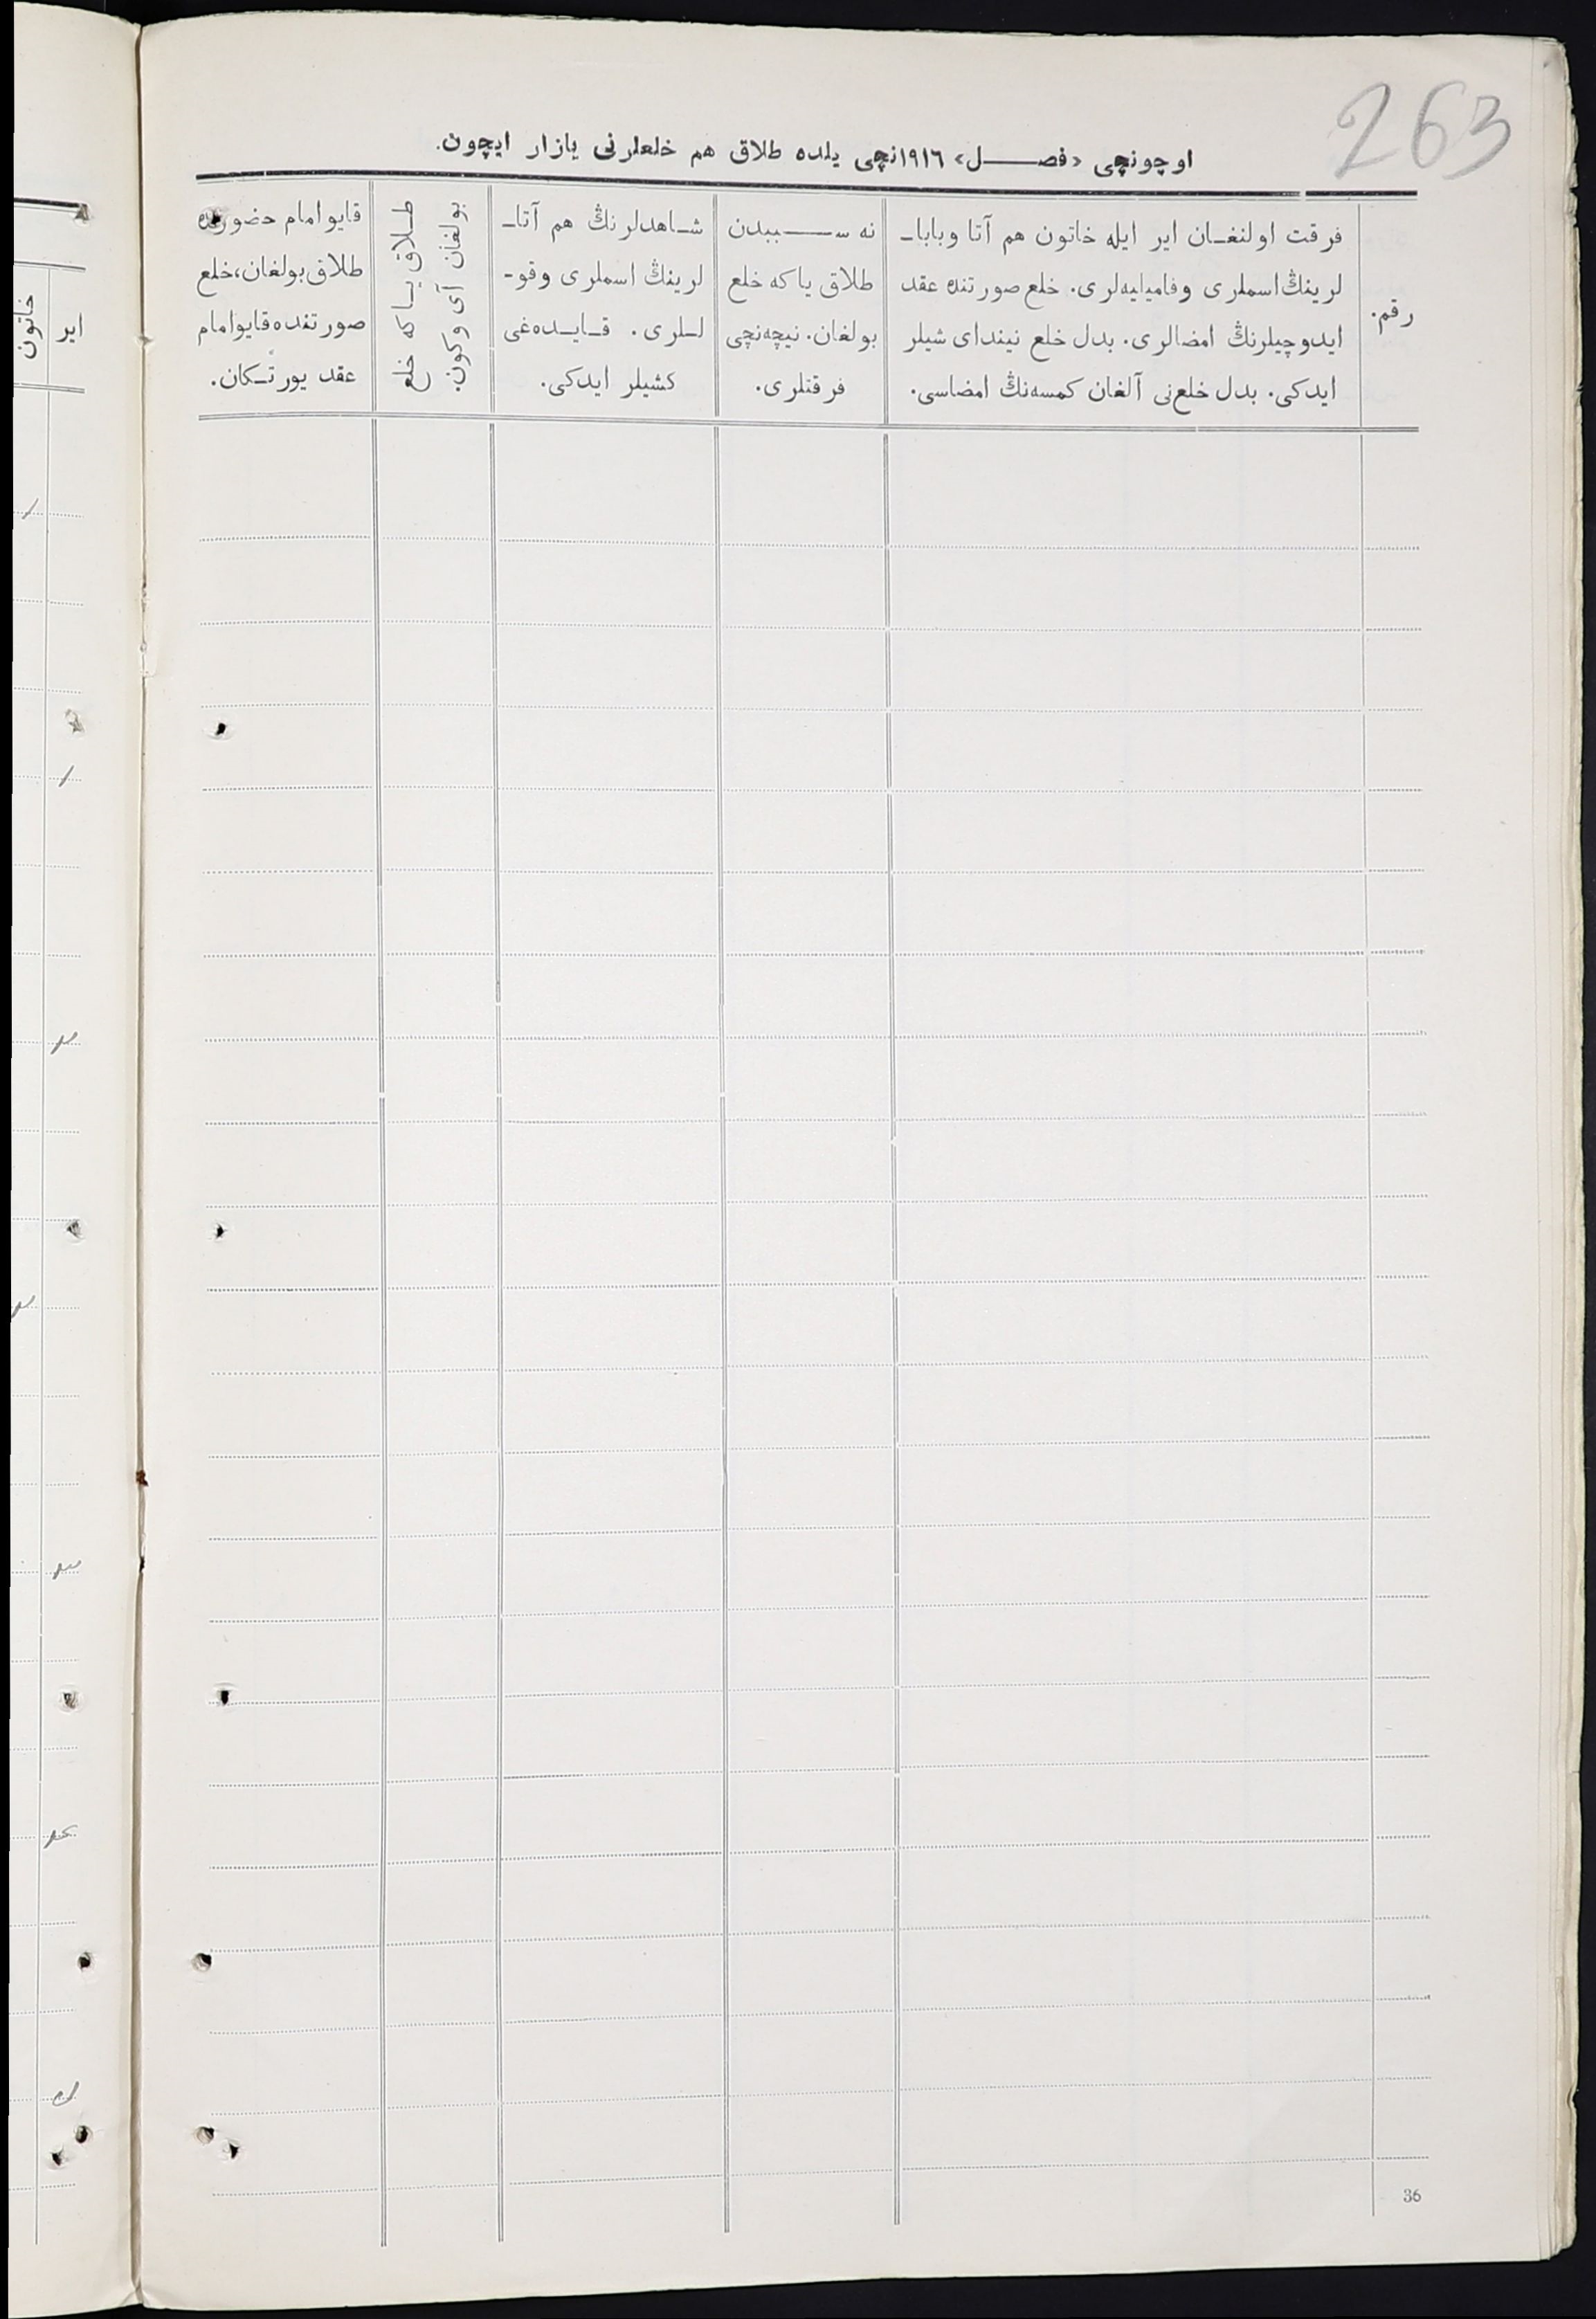 263
اوچونچی «فصـــل» ١٩١٦نچی یلده طلاق هم خلعلرنی یازار ایچون.
رقم.
فرقت اولنغـان ایر ایله خاتون هم آتا وباباـ
لرینڭ اسملری وفامیلیه‌لری. خلع صورتنده عقد
ایدوچیلرنڭ امضالری. بدل خلع نیندای شیلر
ایدکی. بدل خلع‌نی آلغان کمسه‌نڭ امضاسی.
نه ســـببدن
طلاق یاکه خلع
بولغان. نیچه‌نچی
فرقتلری.
شـاهدلرنڭ هم آتاـ
لرینڭ اسملری وقوـ
لـلری. قـایـده‌غی
کشیلر ایدکی.
طـلاق یـاکه خلع
بولغان آی وکون.
قایو امام حضورنده
طلاق بولغان، خلع
صورتنده قایو امام
عقد یورتـکان.
ایر
خاتون
36